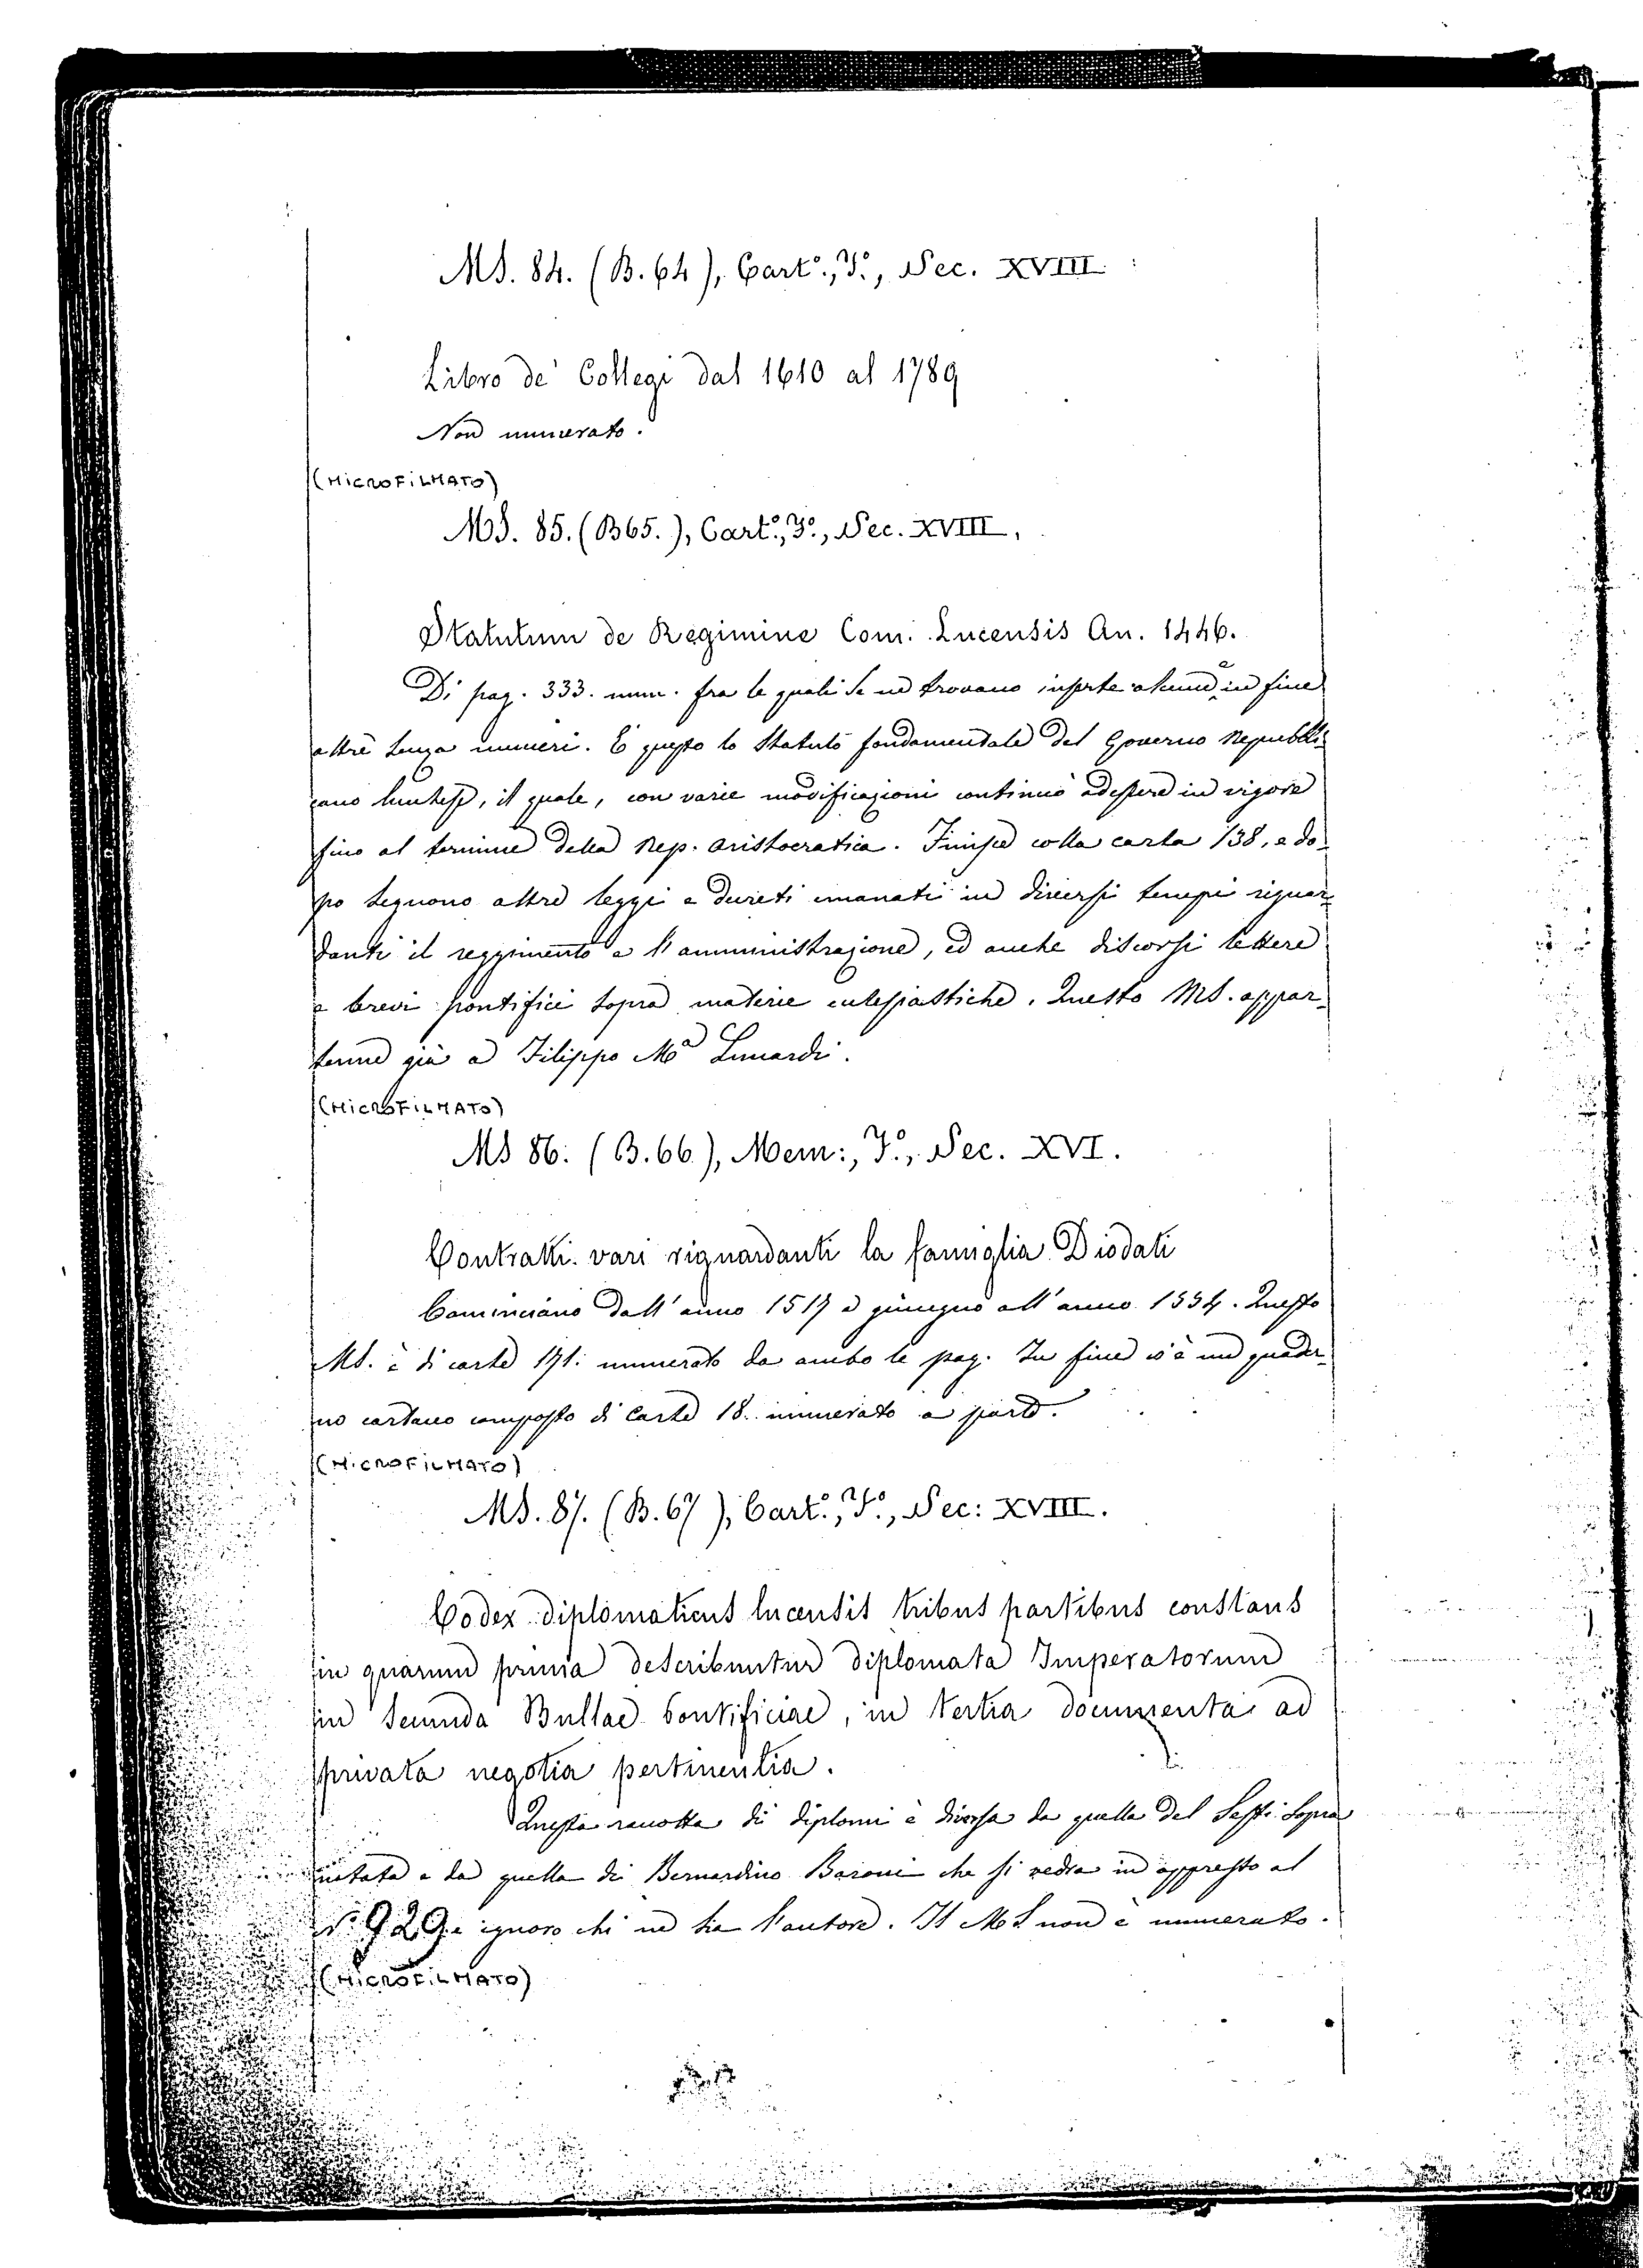 MS. 84. (B. 64), Cart.°, F.°, Sec. XVIII.
Libro de' Collegi dal 1610 al 1789
Non numerato.
(MICROFILMATO)
MS. 85. (B65.), Cart.°, F.°, Sec. XVIII.
Statutum de Regimine Com. Lucensis An. 1446.
Di pag. 333. num. fra le quali se ne trovano inserte alcune, e in fine
altre senza numeri. È questo lo Statuto fondamentale del Governo Repubbli-
cano lucchese, il quale, con varie modificazioni continuò ad essere in vigore
fino al termine della Rep. aristocratica. Finisce colla carta 138, e do-
po seguono altre leggi e decreti emanati in diversi tempi riguar-
danti il reggimento e l'amministrazione, ed anche discorsi lettere
e brevi pontifici sopra materie ecclesiastiche. Questo MS. appar-
tenne già a Filippo M.a Lunardi.
(MICROFILMATO)
MS 86. (B. 66), Mem:, F.°, Sec. XVI.
Contratti vari riguardanti la famiglia Diodati
Cominciano dall'anno 1517 e giungono all'anno 1534. Questo
MS. è di carte 171. numerato da ambo le pag. In fine v'è un quader-
no cartaceo composto di carte 18. numerato a parte.
(MICROFILMATO)
MS. 87. (B. 67), Cart.°, F.°, Sec: XVIII.
Codex diplomaticus lucensis tribus partibus constans
in quarum prima describuntur diplomata Imperatorum
in secunda Bullae Pontificiae, in tertia documenta ad
privata negotia pertinentia.
Questa raccolta di diplomi è diversa da quella del Sesti sopra
citata e da quella di Bernardino Baroni che si vedrà in appresso al
N.° 929. e ignoro chi ne sia l'autore. Il MS non è numerato.
(MICROFILMATO)